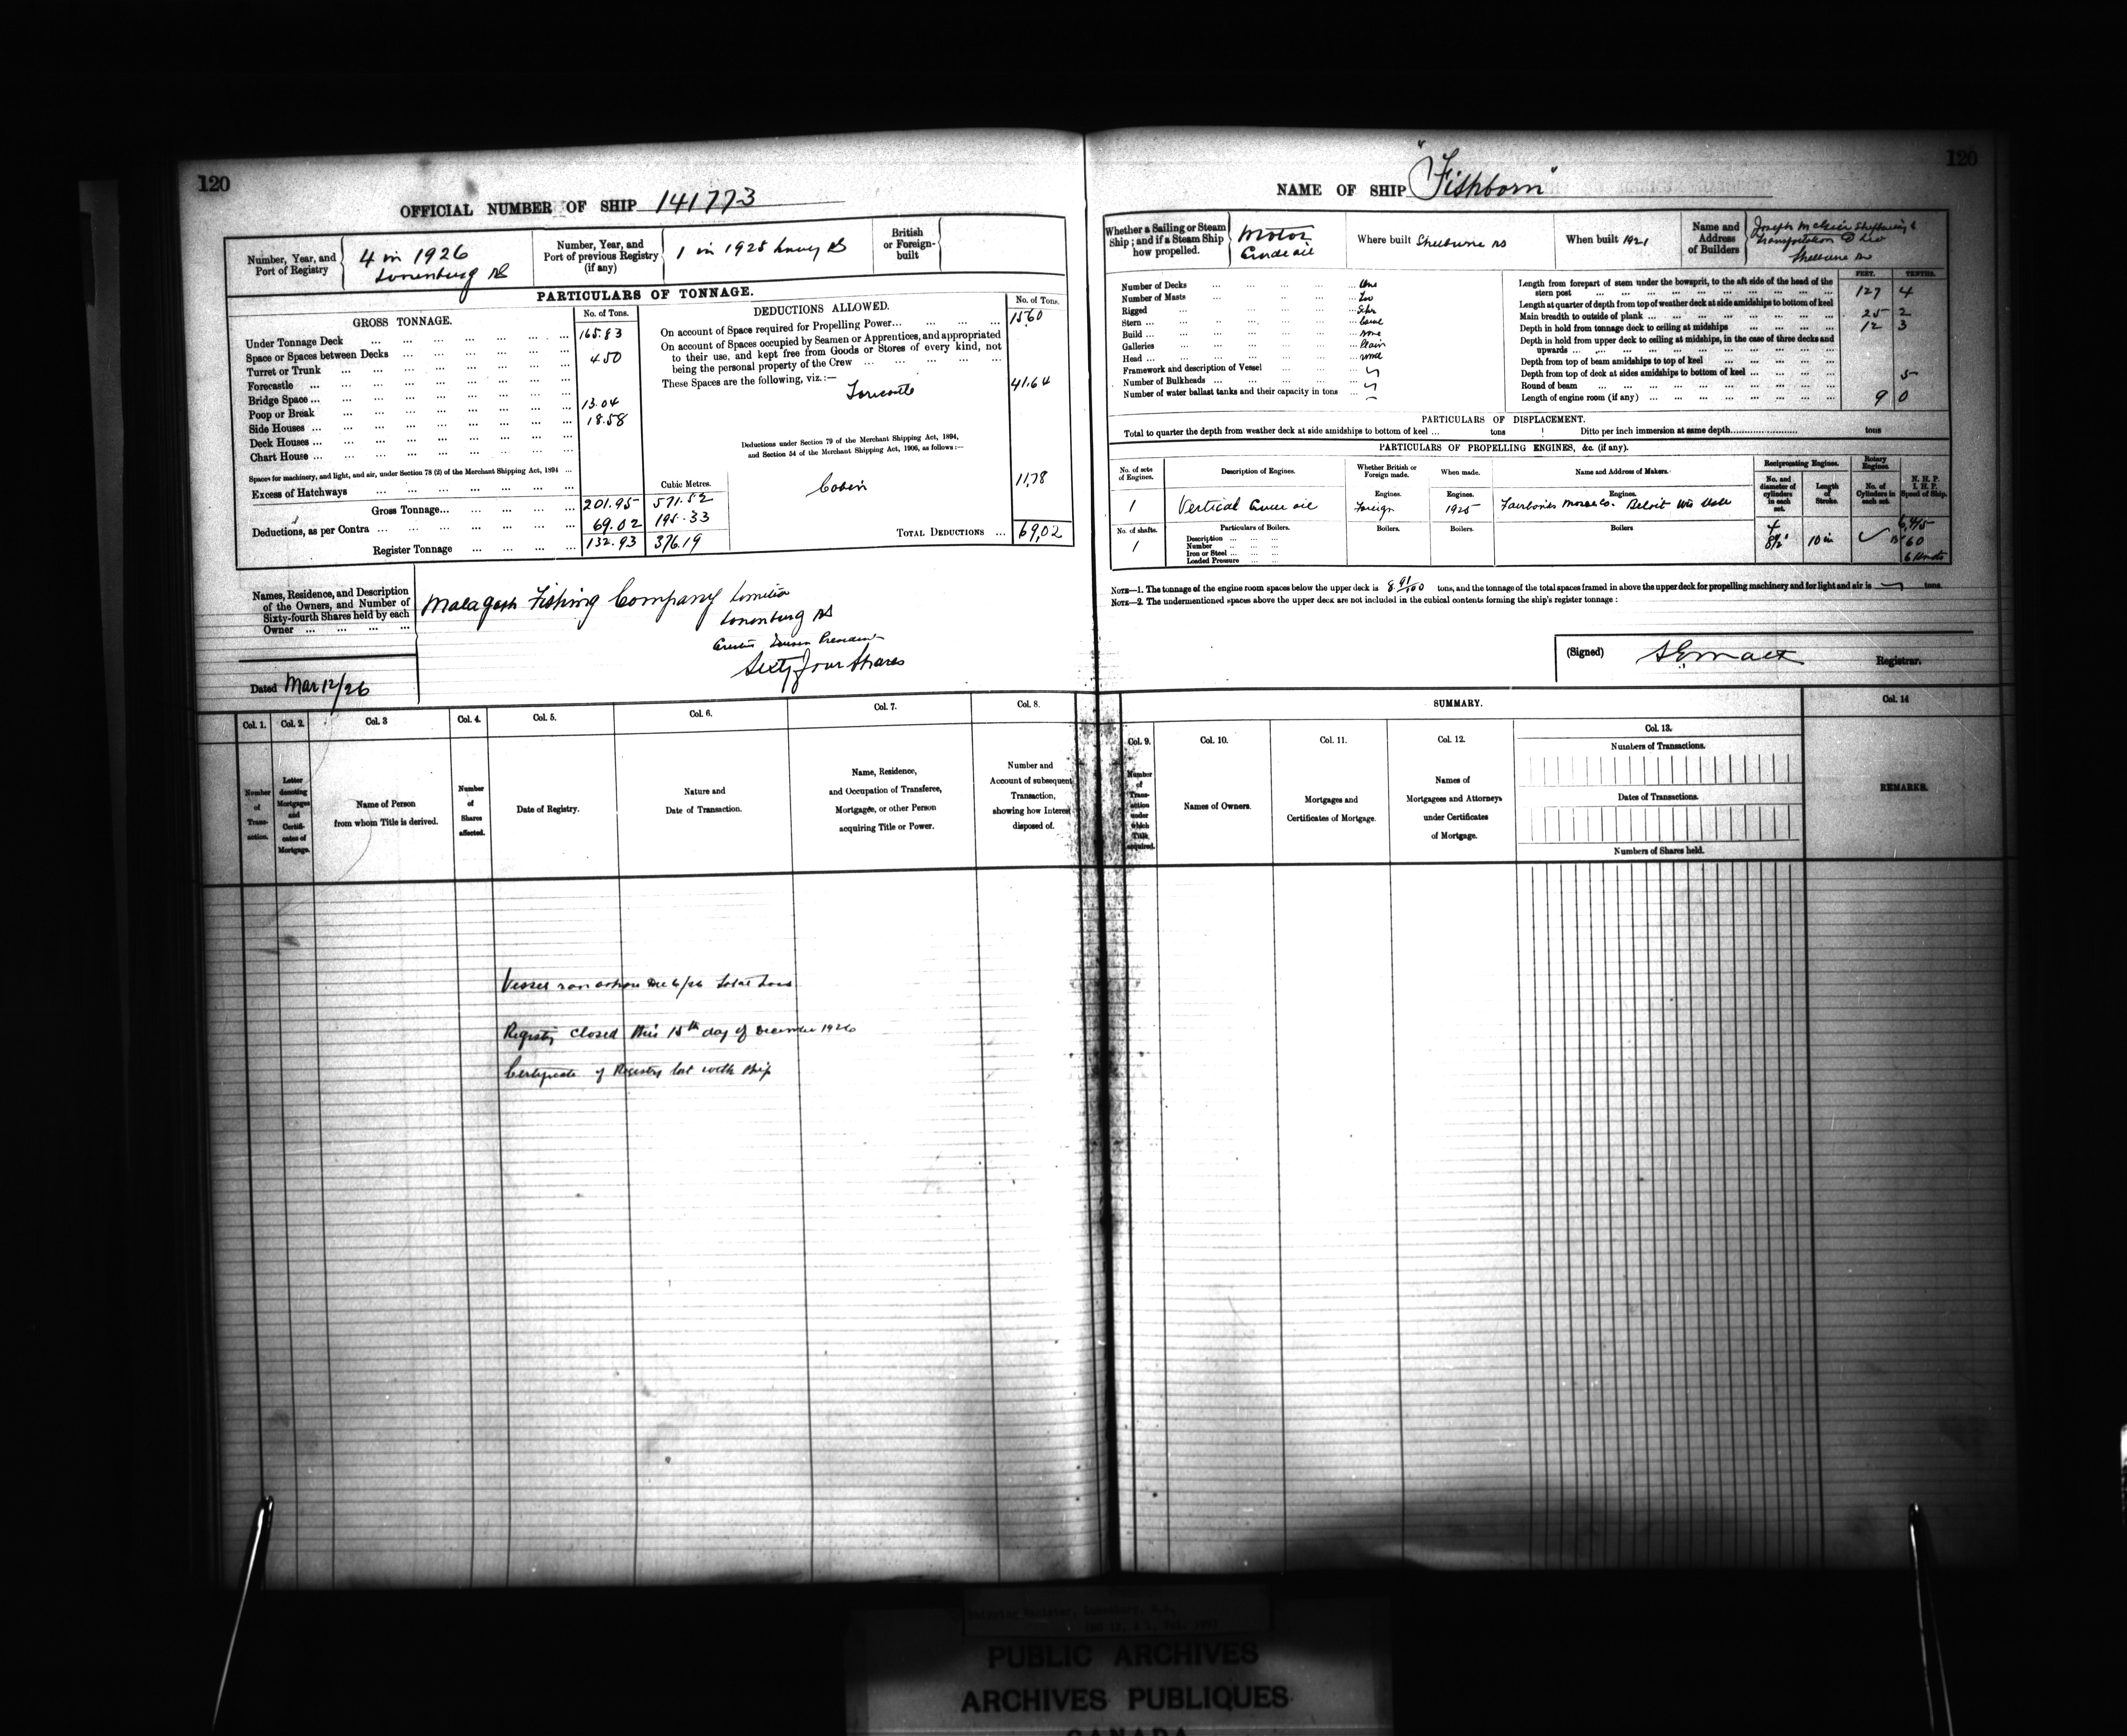 120
OFFICIAL NUMBER OF SHIP 141773
Number, Year, and Port of Registry
4 in 1926
Lunenburg NS
Number, Year, and Port of previous Registry (if any)
1 in 1925 NS
British or Foreign-built
PARTICULARS OF TONNAGE.
GROSS TONNAGE.
No. of Tons.
Under Tonnage Deck 165.83
Space or Spaces between Decks
Turret or Trunk 4.50
Forecastle
Bridge Space
Poop or Break 13.04
Side Houses 18.58
Deck Houses
Chart House
Spaces for machinery, and light, and air, under Section 78 (2) of the Merchant Shipping Act, 1894
Excess of Hatchways
Cubic Metres.
Gross Tonnage 201.95 571.52
Deductions, as per Contra 69.02 195.33
Register Tonnage 132.93 376.19
DEDUCTIONS ALLOWED.
No. of Tons.
On account of Space required for Propelling Power 15.60
On account of Spaces occupied by Seamen or Apprentices, and appropriated
to their use, and kept free from Goods or Stores of every kind, not
being the personal property of the Crew
These Spaces are the following, viz.:—
41.64
Deductions under Section 79 of the Merchant Shipping Act, 1894,
and Section 54 of the Merchant Shipping Act, 1906, as follows:—
Cabin 11.78
TOTAL DEDUCTIONS 69.02
Names, Residence, and Description
of the Owners, and Number of
Sixty-fourth Shares held by each
Owner
Malagash Fishing Company Limited
Lunenburg NS
President
Sixty four Shares
Dated Mar 12/26
Col. 1. Col. 2. Col. 3 Col. 4. Col. 5. Col. 6. Col. 7. Col. 8.
Number of Transaction.
Letter denoting Mortgages and Certificates of Mortgage.
Name of Person from whom Title is derived.
Number of Shares affected.
Date of Registry.
Nature and Date of Transaction.
Name, Residence, and Occupation of Transferee, Mortgagee, or other Person acquiring Title or Power.
Number and Account of subsequent Transaction, showing how Interest disposed of.
Vessel ran ashore Dec 6/26 Total Loss
Registry closed this 15th day of December 1926
Certificate of Registry lost with ship
120
NAME OF SHIP "Fishborn"
Whether a Sailing or Steam Ship; and if a Steam Ship how propelled.
Motor
Crude oil
Where built Shelburne NS
When built 1921
Name and Address of Builders
Joseph McGill Shipbuilding &
Transportation Co Ltd
Shelburne NS
Number of Decks One
Number of Masts Two
Rigged Schr
Stern
Build
Galleries
Head
Framework and description of Vessel
Number of Bulkheads
Number of water ballast tanks and their capacity in tons
FEET. TENTHS.
Length from forepart of stem under the bowsprit, to the aft side of the head of the
stern post 127 4
Length at quarter of depth from top of weather deck at side amidships to bottom of keel
Main breadth to outside of plank 25 2
Depth in hold from tonnage deck to ceiling at midships 12 3
Depth in hold from upper deck to ceiling at midships, in the case of three decks and
upwards
Depth from top of beam amidships to top of keel
Depth from top of deck at sides amidships to bottom of keel
Round of beam 5
Length of engine room (if any) 9 0
PARTICULARS OF DISPLACEMENT.
Total to quarter the depth from weather deck at side amidships to bottom of keel ... tons
Ditto per inch immersion at same depth tons
PARTICULARS OF PROPELLING ENGINES, &c. (if any).
No. of sets of Engines.
Description of Engines.
Whether British or Foreign made.
When made.
Name and Address of Makers.
Reciprocating Engines.
Rotary Engines.
No. and diameter of cylinders in each set.
Length of Stroke.
No. of Cylinders in each set.
N. H. P. I. H. P. Speed of Ship.
Engines. Engines. Engines.
1 Vertical Crude oil Foreign 1925 Fairbanks Morse Co. Beloit Wis
No. of shafts. Particulars of Boilers. Boilers. Boilers. Boilers
1
Description
Number
Iron or Steel
Loaded Pressure
4
8½" 10 in
60
6 knots
NOTE—1. The tonnage of the engine room spaces below the upper deck is 8.91/100 tons, and the tonnage of the total spaces framed in above the upper deck for propelling machinery and for light and air is tons.
NOTE—2. The undermentioned spaces above the upper deck are not included in the cubical contents forming the ship's register tonnage:
(Signed) Registrar.
SUMMARY.
Col. 9. Col. 10. Col. 11. Col. 12. Col. 13. Col. 14
Number of Transaction under which Title acquired.
Names of Owners.
Mortgages and Certificates of Mortgage.
Names of Mortgagees and Attorneys under Certificates of Mortgage.
Numbers of Transactions.
Dates of Transactions.
Numbers of Shares held.
REMARKS.
PUBLIC ARCHIVES
ARCHIVES PUBLIQUES
CANADA